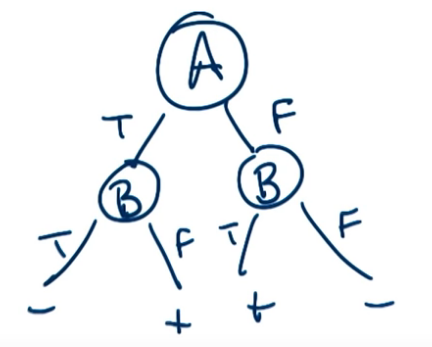 A
T F
B B
T F T F
- + + -